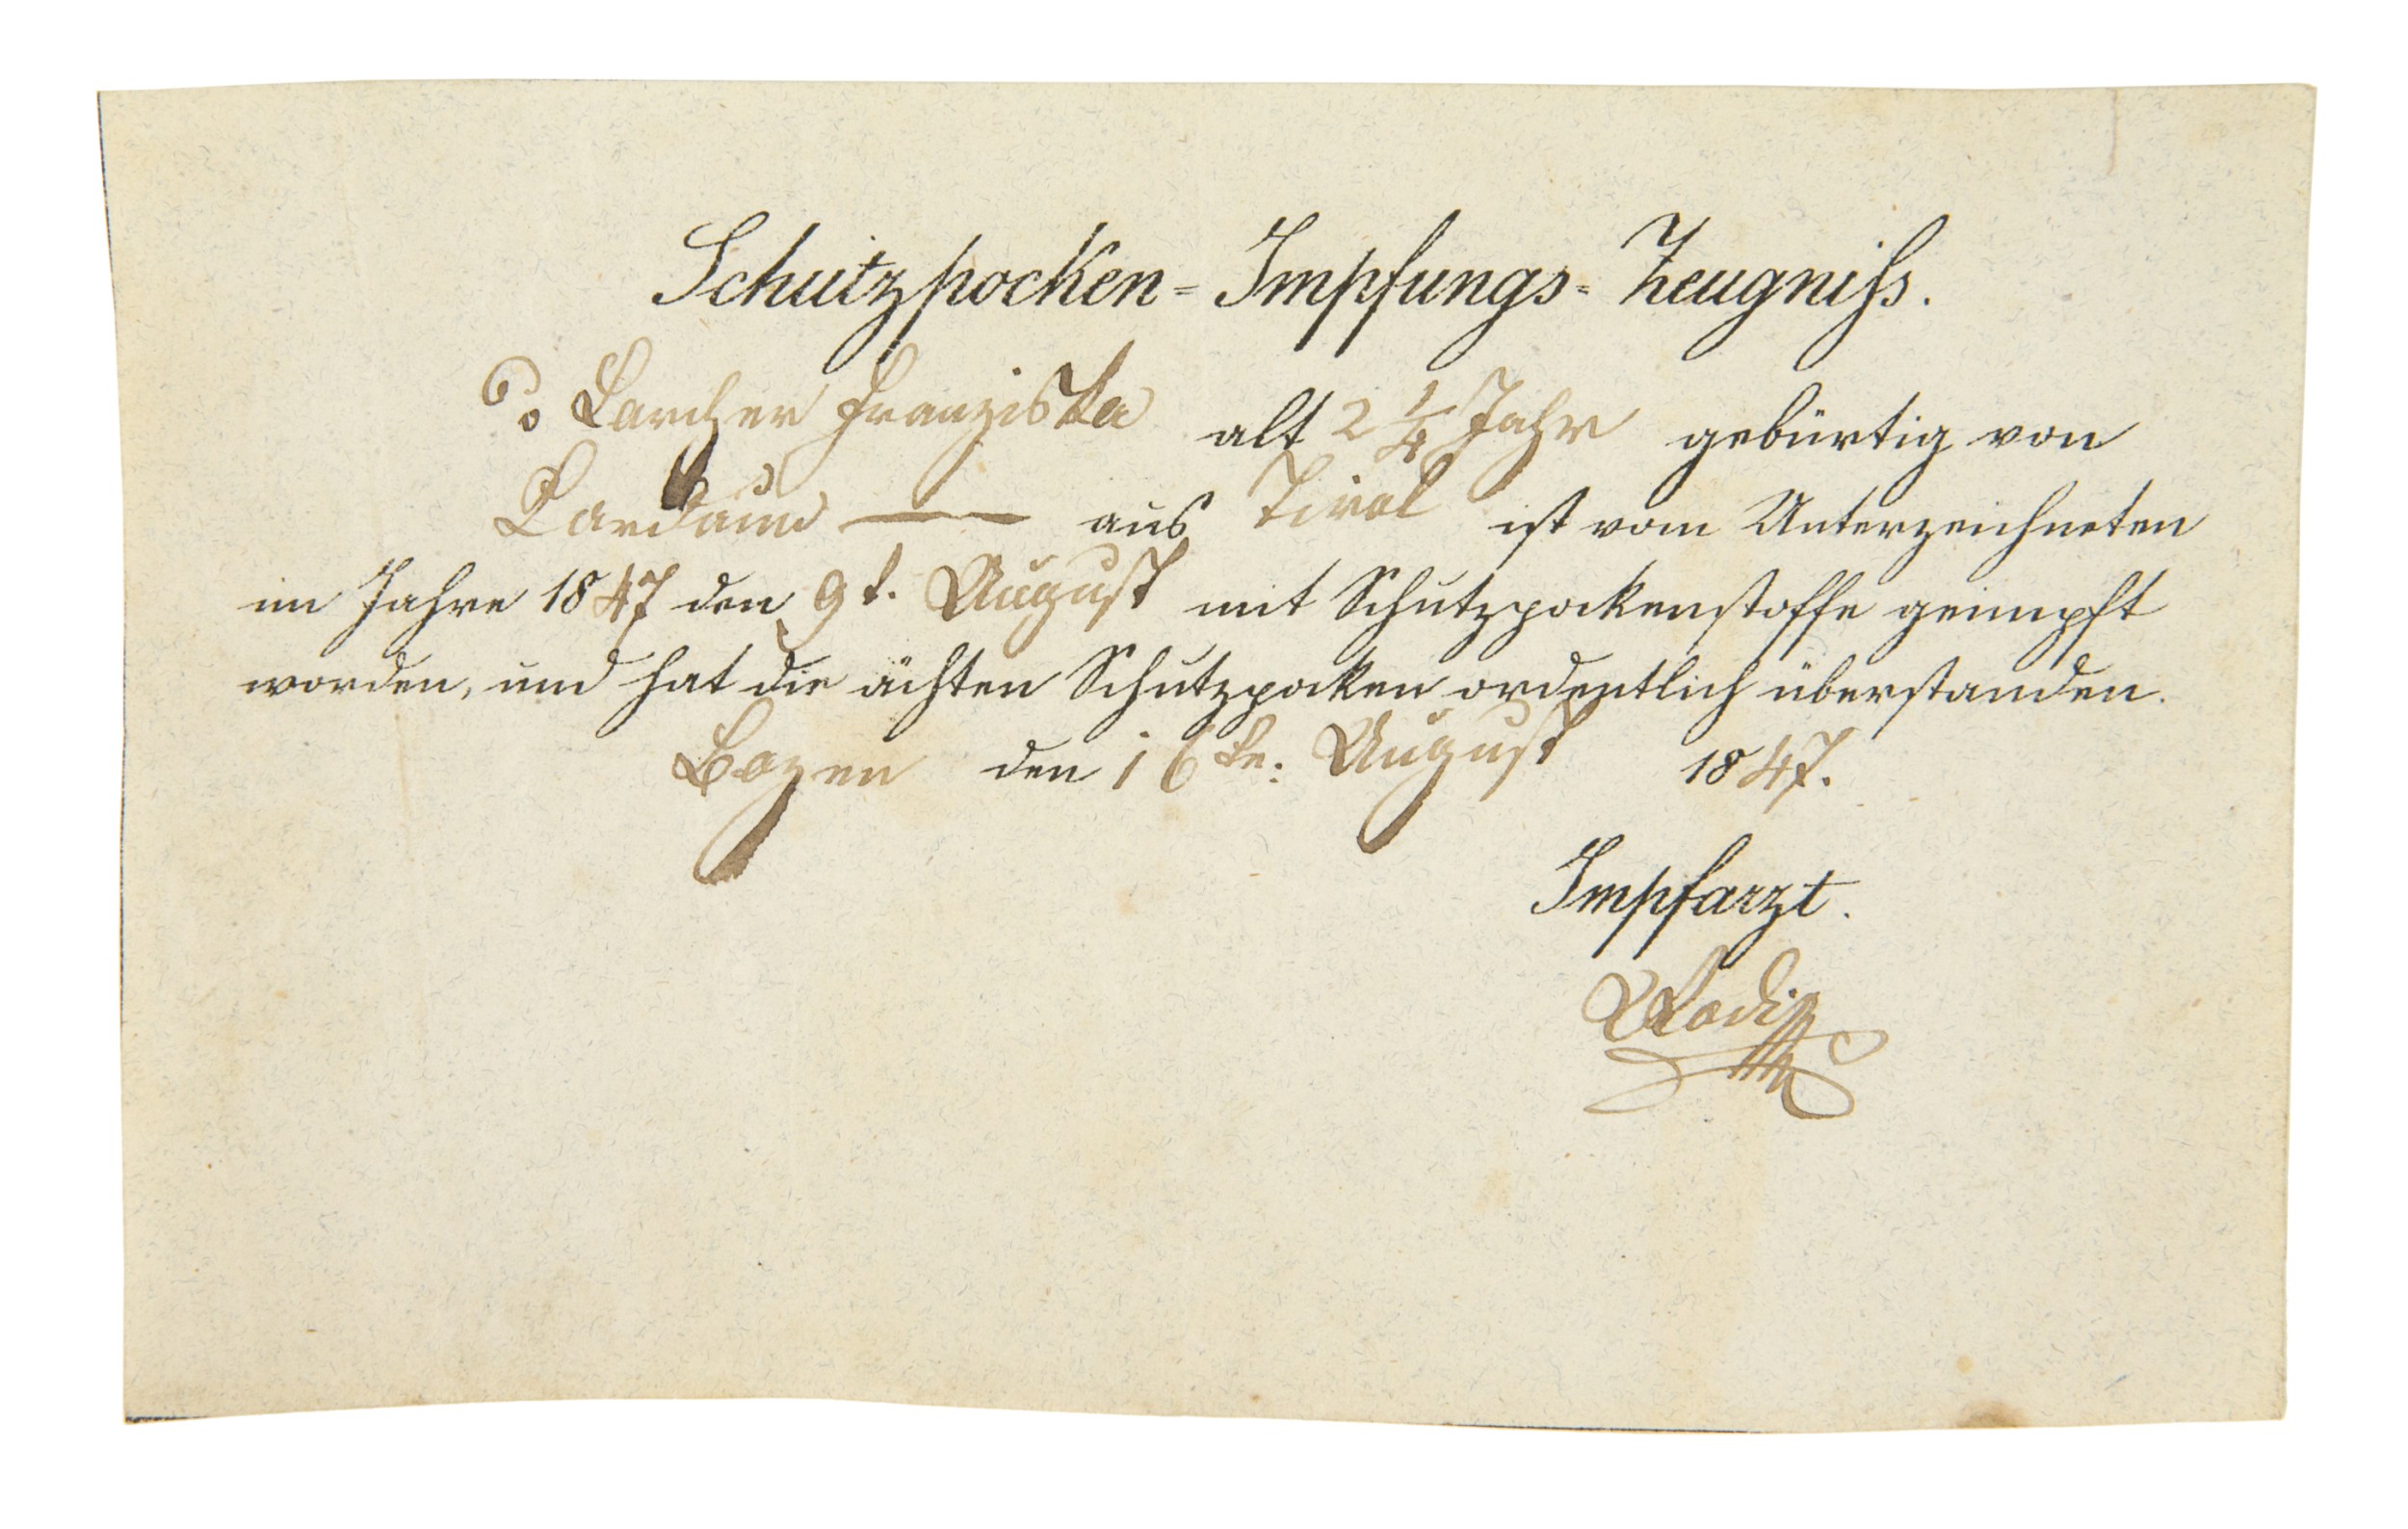 Schutzpocken= Impfungs= Zeugniß.
Larcher Franziska alt 2 1/4 Jahr gebürtig von
Kardaun — aus Tirol ist vom Unterzeichneten
im Jahre 1847 den 9t. August mit Schutzpockenstoffe geimpft
worden, und hat die ächten Schutzpocken ordentlich überstanden.
Bozen den 16te: August 1847.
Impfarzt.